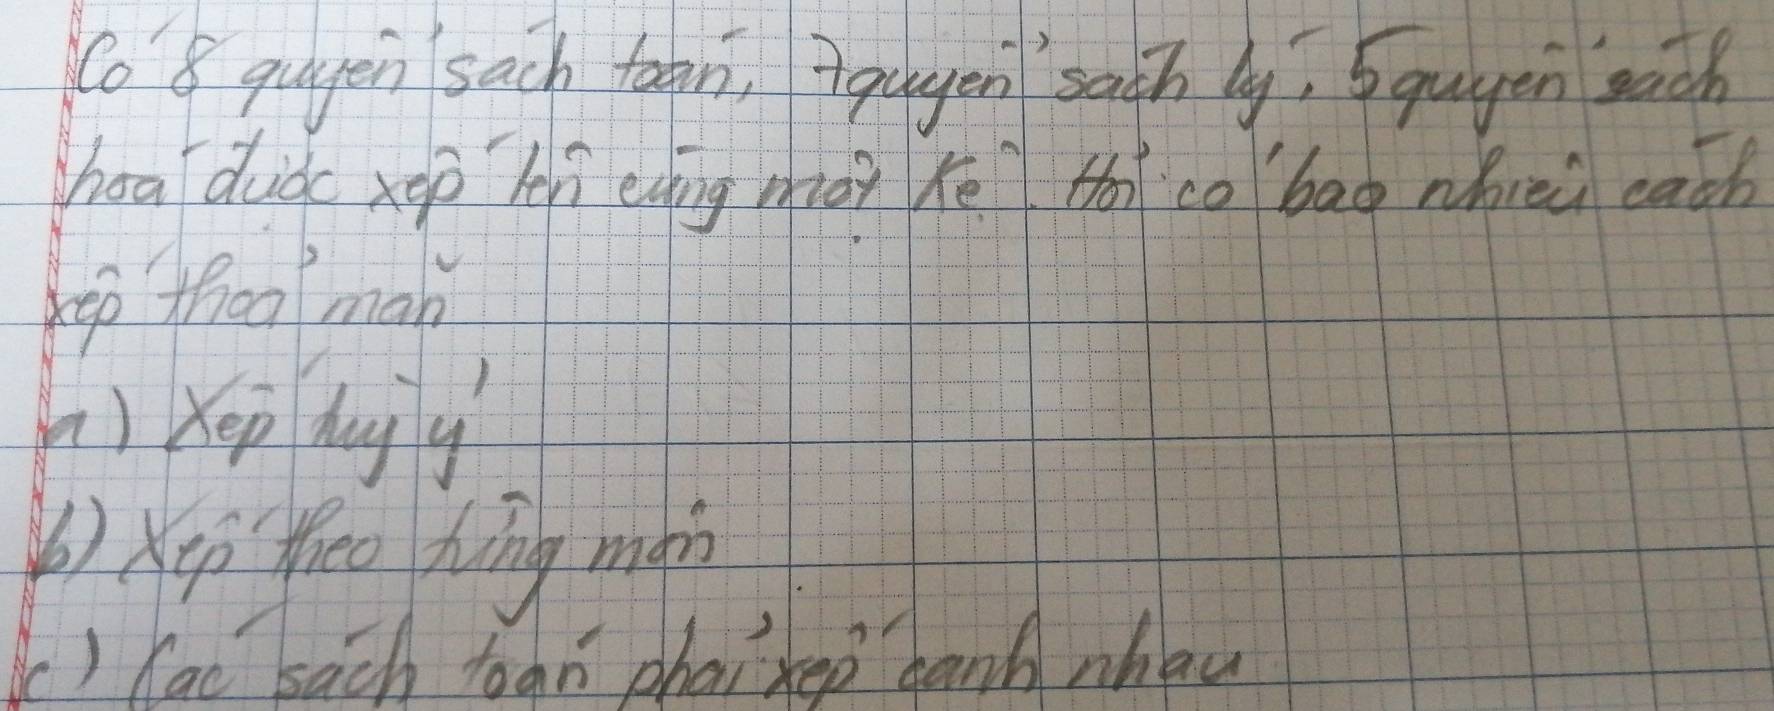 Có 8 quyển sách toán, 7 quyển sách lý, 5 quyển sách
hoá được xếp lên cùng một kệ. Hỏi có bao nhiêu cách
xếp thoả mãn
a) Xếp tuỳ ý
b) Xếp theo từng môn
c) Các sách toán phải xếp cạnh nhau